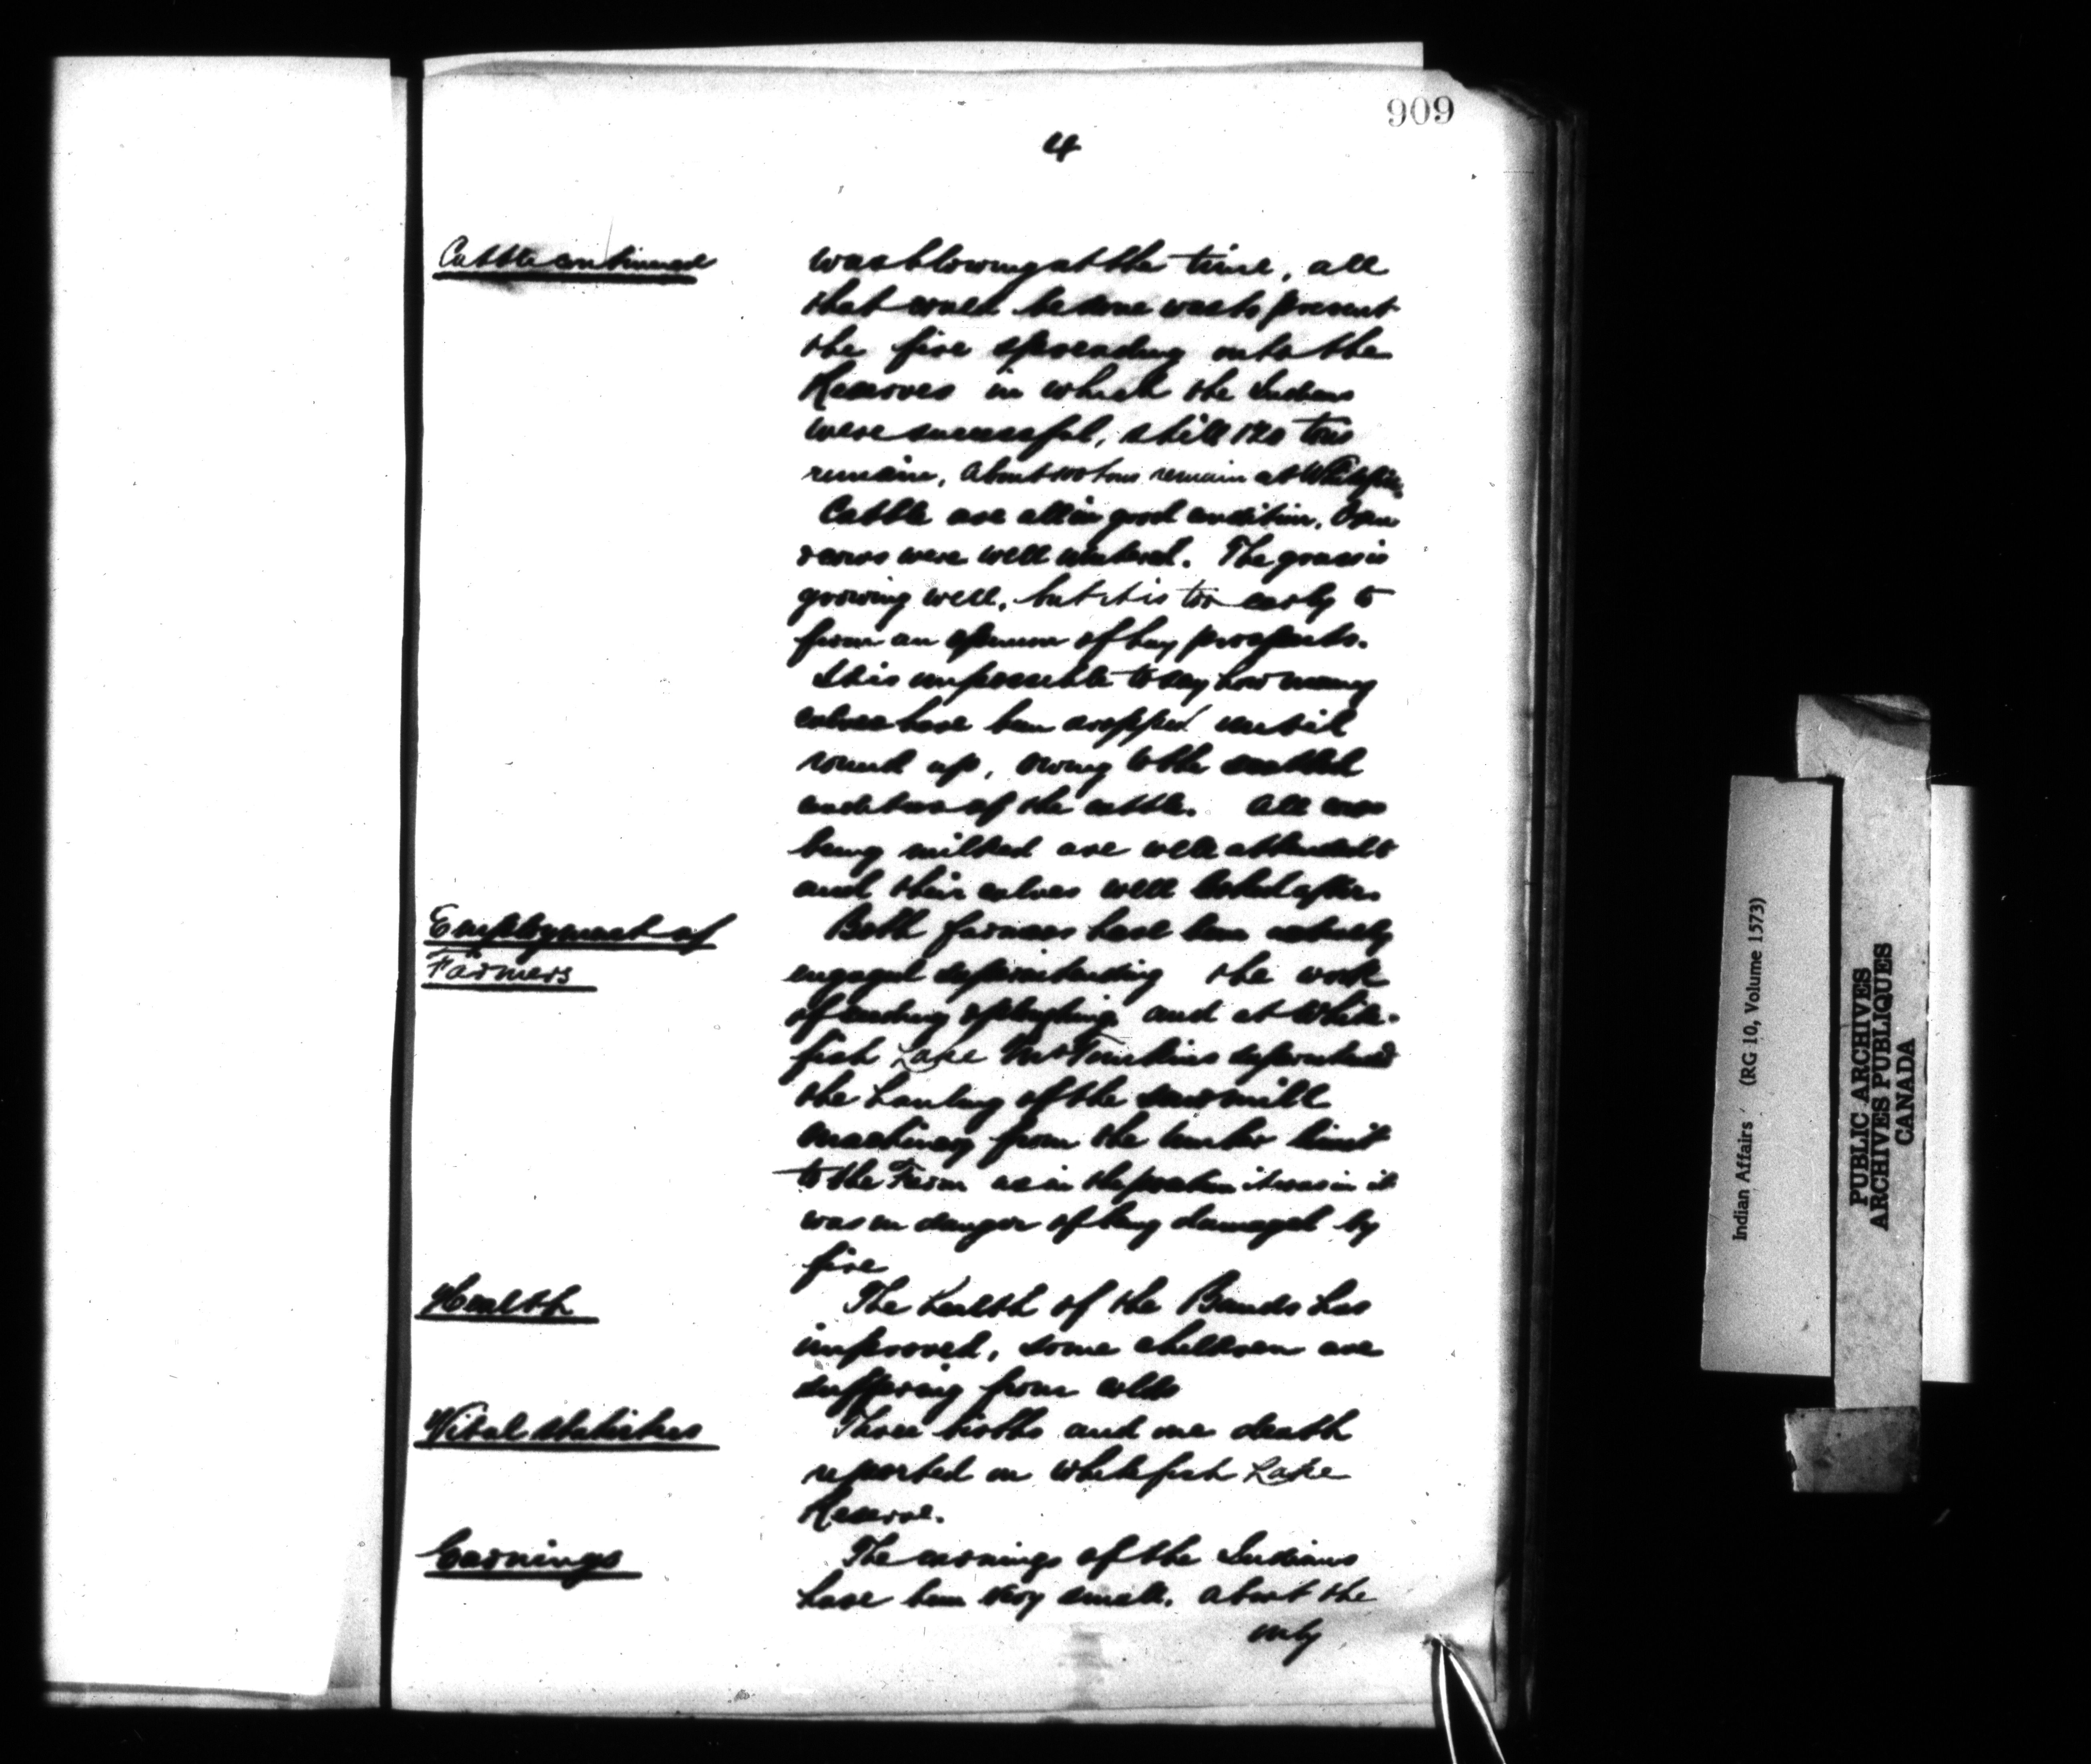 909
4
Cattle continued
was blowing at the time, all
that could be done was to prevent
the fire spreading onto the
Reserves in which the Indians
were successful, still 120 tons
remain, About 100 tons remain at Whitefish
Cattle are all in good condition. Oxen
were well wintered. The grass is
growing well, but it is too early to
form an opinion of hay prospects.
It is impossible to say how many
calves have been dropped until
round up, owing to the
condition of the cattle. All cows
being milked are well attended to
and their calves well looked after
Employment of
Farmers
Both farmers have been actively
engaged superintending the work
of seeding & ploughing and at White-
fish Lake Mr Tompkins superintended
the hauling of the sawmill
machinery from the timber limit
to the Farm as in the position it was in it
was in danger of being damaged by
fire
Health
The health of the Bands has
improved, some children are
suffering from colds
Vital Statistics
Three births and one death
reported on Whitefish Lake
Reserve.
Earnings
The earnings of the Indians
have been very small. About the
only
Indian Affairs (RG 10, Volume 1573)
PUBLIC ARCHIVES
ARCHIVES PUBLIQUES
CANADA